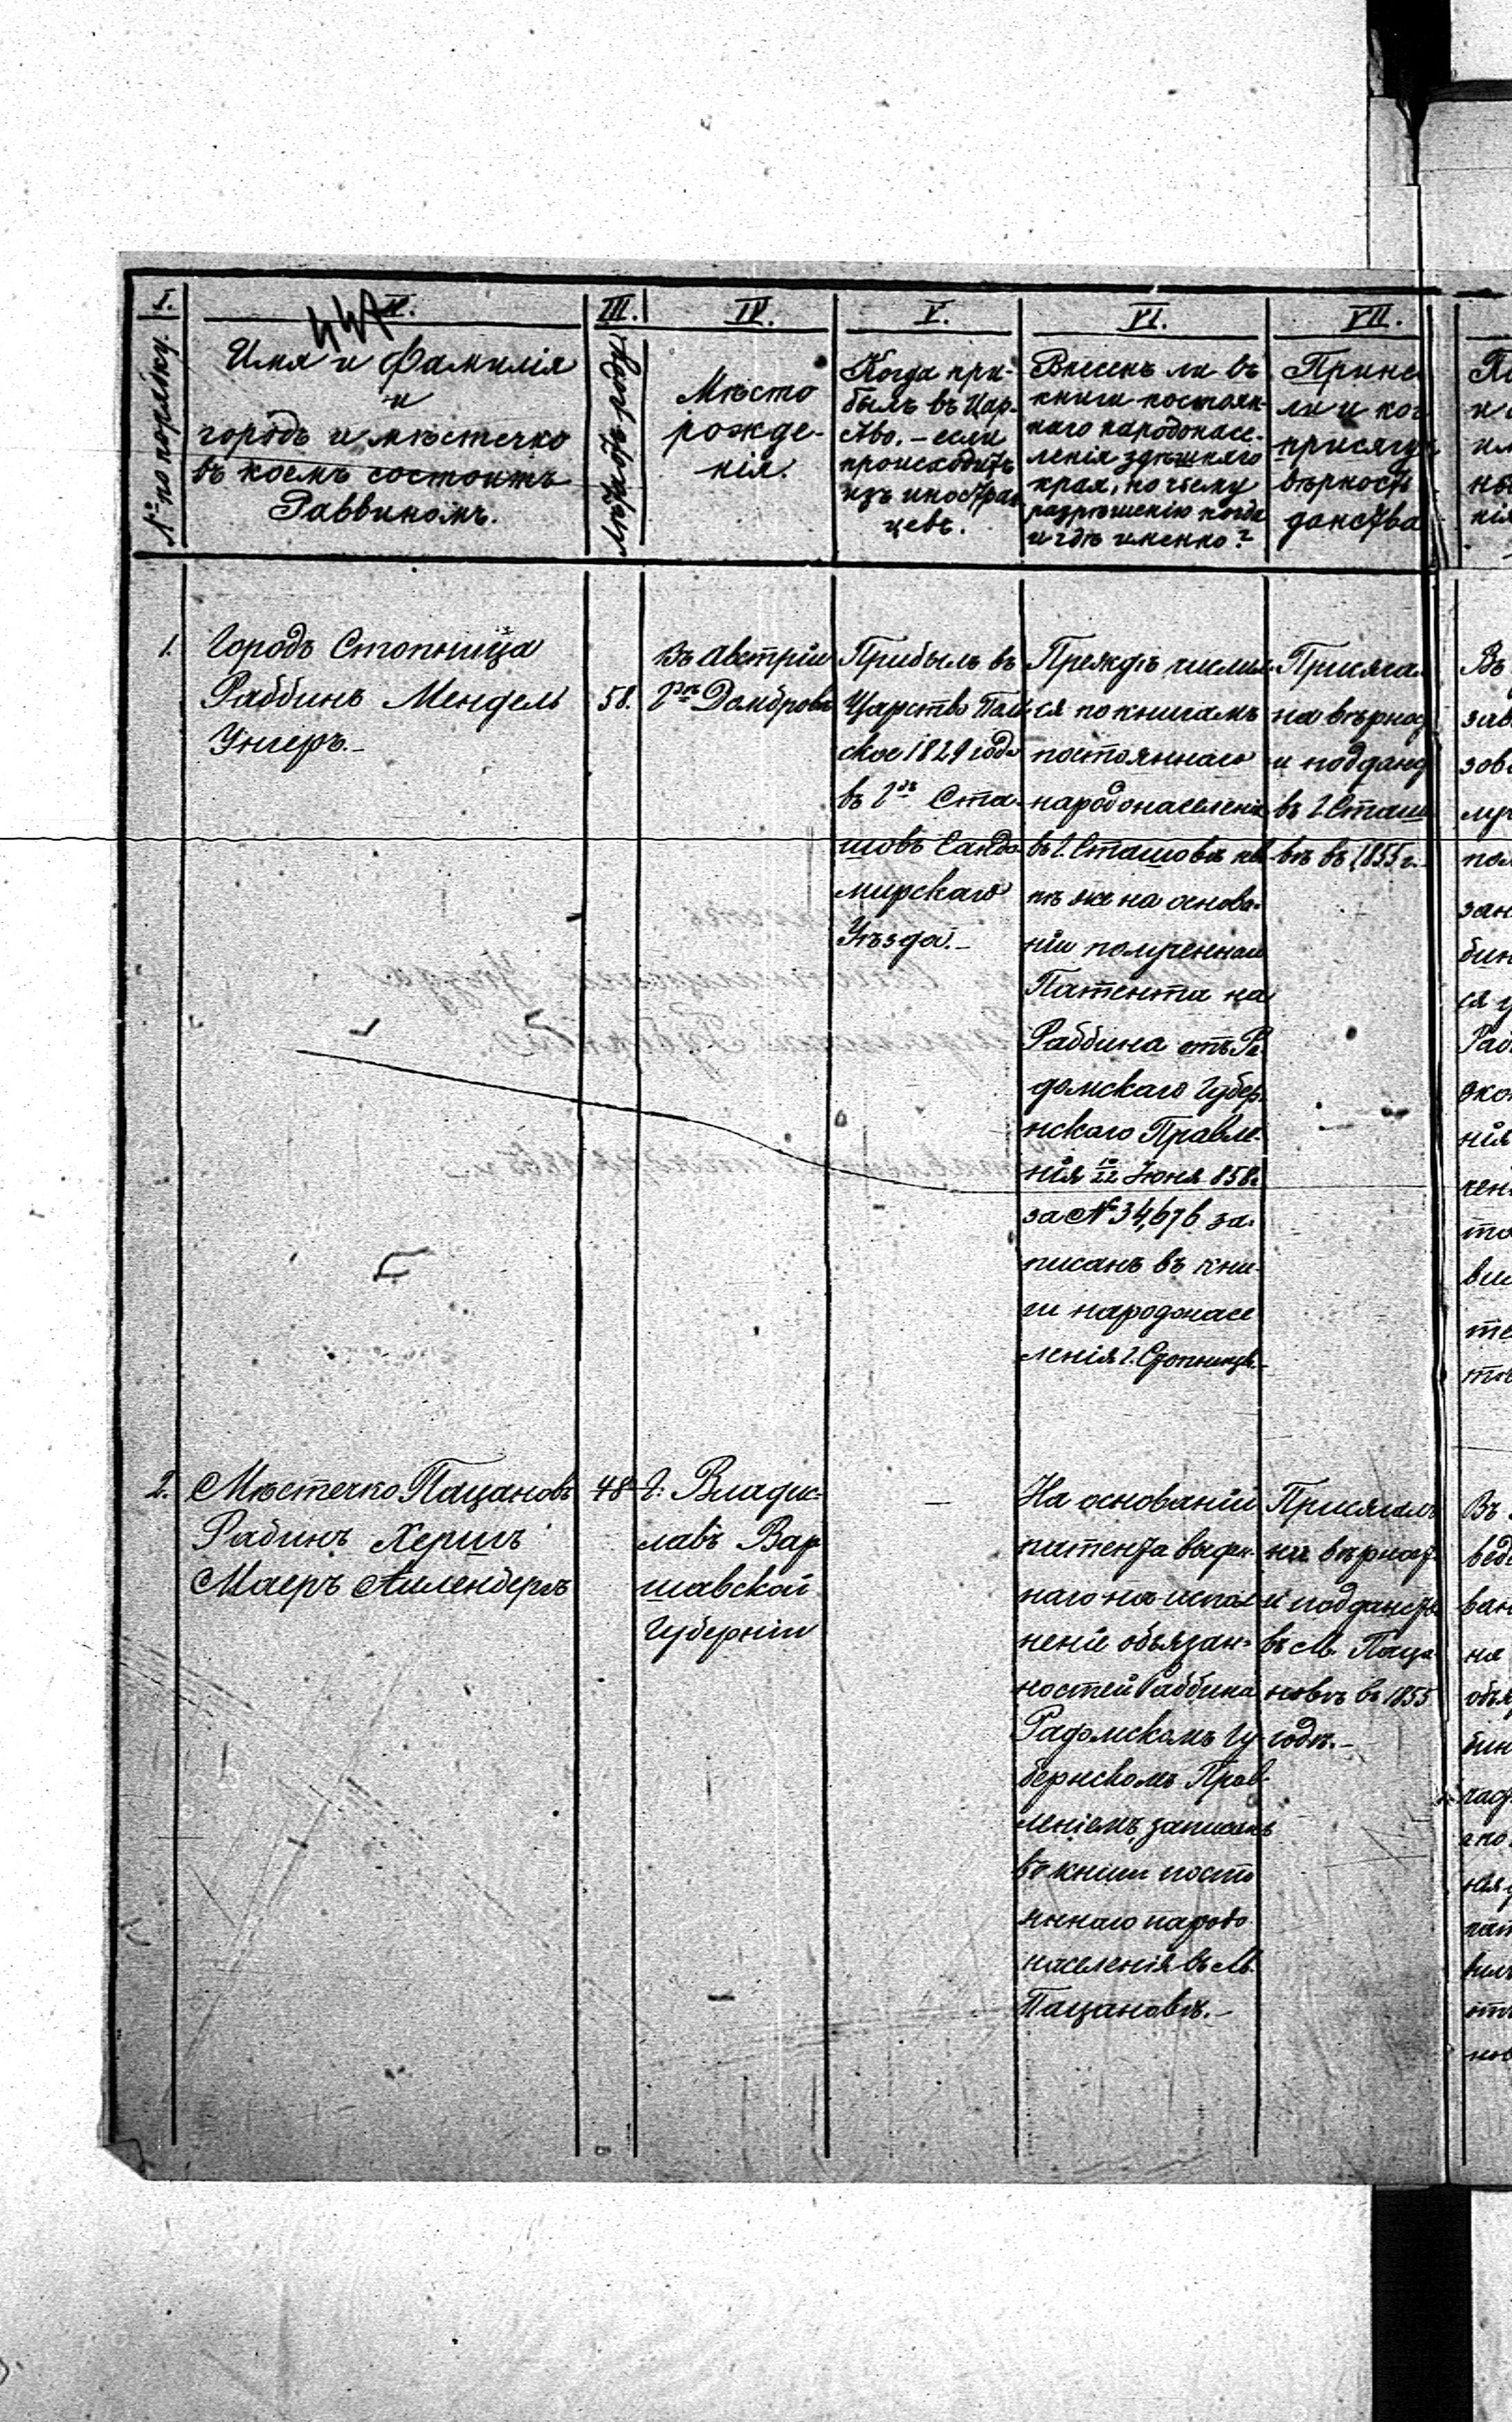 I.
№ по порядку.
447
II.
Имя и Фамилія
и
городъ и мѣстечко
въ коемъ состоитъ
Раввиномъ.
III.
IV.
Мѣсто
рожде-
нія.
V.
Когда при-
былъ въ Цар-
ство. – если
происходитъ
изъ иностран
цевъ.
VI.
Внесенъ ли въ
книги постоян-
наго народонасе-
ленія здѣшняго
края, по чьему
разрѣшенію когда
и гдѣ именно?
VII.
Прине
ли и ког
присягу
вѣрность
данства
1.
Городъ Стопница
Раббинъ Мендель
Унгеръ.–
58.
Въ Австріи
Домброва
Прибылъ въ
Царство Поль
ское 1829 года
въ Ста-
шовъ Сандо
мирскаго
Уѣзда.–
Прежде числил
ся по книгамъ
постояннаго
народонаселенія
въ Г. Сташовѣ ны
нѣ же на основа-
ніи полученнаго
Патента на
Раббина отъ Ра-
домскаго Губер-
нскаго Правле-
нія 10/22 Іюня 858г
за № 34,676 за-
писанъ въ кни-
ги народонасе
ленія Г. Стопницы.–
Присягал
на вѣрнос
и подданс
въ Г. Сташ
вѣ въ 1855 г.
2.
Мѣстечко Пацановъ
Рабинъ Хершъ
Маеръ
48
Г. Владис-
лавъ Вар
шавской
Губерніи
–
На основаніи
патента выдан-
наго на испол
неніе обязан-
ностей Раббина
Радомскомъ Гу-
бернскомъ Прав-
леніемъ, записанъ
въ книги посто
яннаго народо
населенія въ М.
Пацановѣ.–
Присягалъ
на вѣрност
и подданств
въ М. Паца-
новѣ въ 1855
годѣ.–